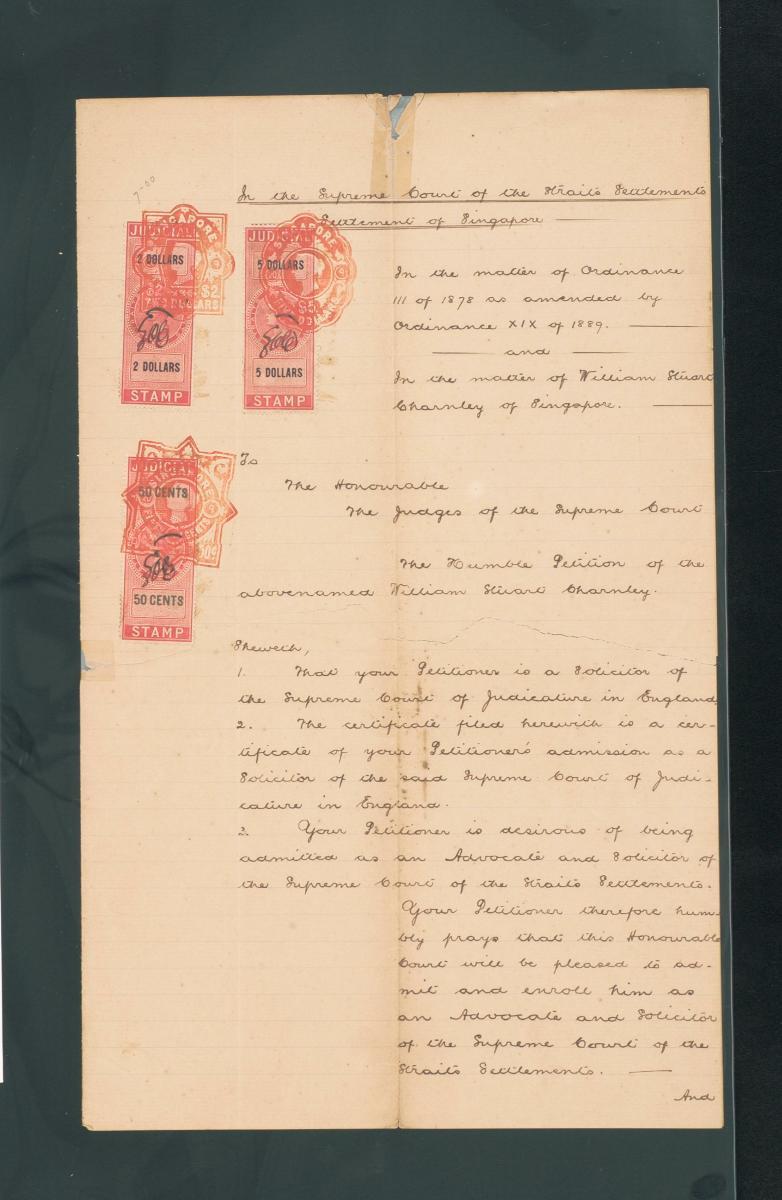 7-00
In the Supreme Court of the Straits Settlements
Settlement of Singapore
JUDICIAL
2 DOLLARS
SINGAPORE
$2
TWO DOLLARS
2 DOLLARS
STAMP
JUDICIAL
5 DOLLARS
SINGAPORE
$5
DOLLARS
5 DOLLARS
STAMP
In the matter of Ordinance
III of 1878 as amended by
Ordinance XIX of 1889.
and
In the matter of William Stuart
Charnley of Singapore.
JUDICIAL
50 CENTS
CENTS
50 CENTS
STAMP
To
The Honourable
The Judges of the Supreme Court
The Humble Petition of the
abovenamed William Stuart Charnley.
Sheweth,
1. That your Petitioner is a Solicitor of
the Supreme Court of Judicature in England.
2. The certificate filed herewith is a cer-
tificate of your Petitioner's admission as a
Solicitor of the said Supreme Court of Judi-
cature in England.
3. Your Petitioner is desirous of being
admitted as an Advocate and Solicitor of
the Supreme Court of the Straits Settlements.
Your Petitioner therefore hum-
bly prays that this Honourable
Court will be pleased to ad-
mit and enroll him as
an Advocate and Solicitor
of the Supreme Court of the
Straits Settlements.
And